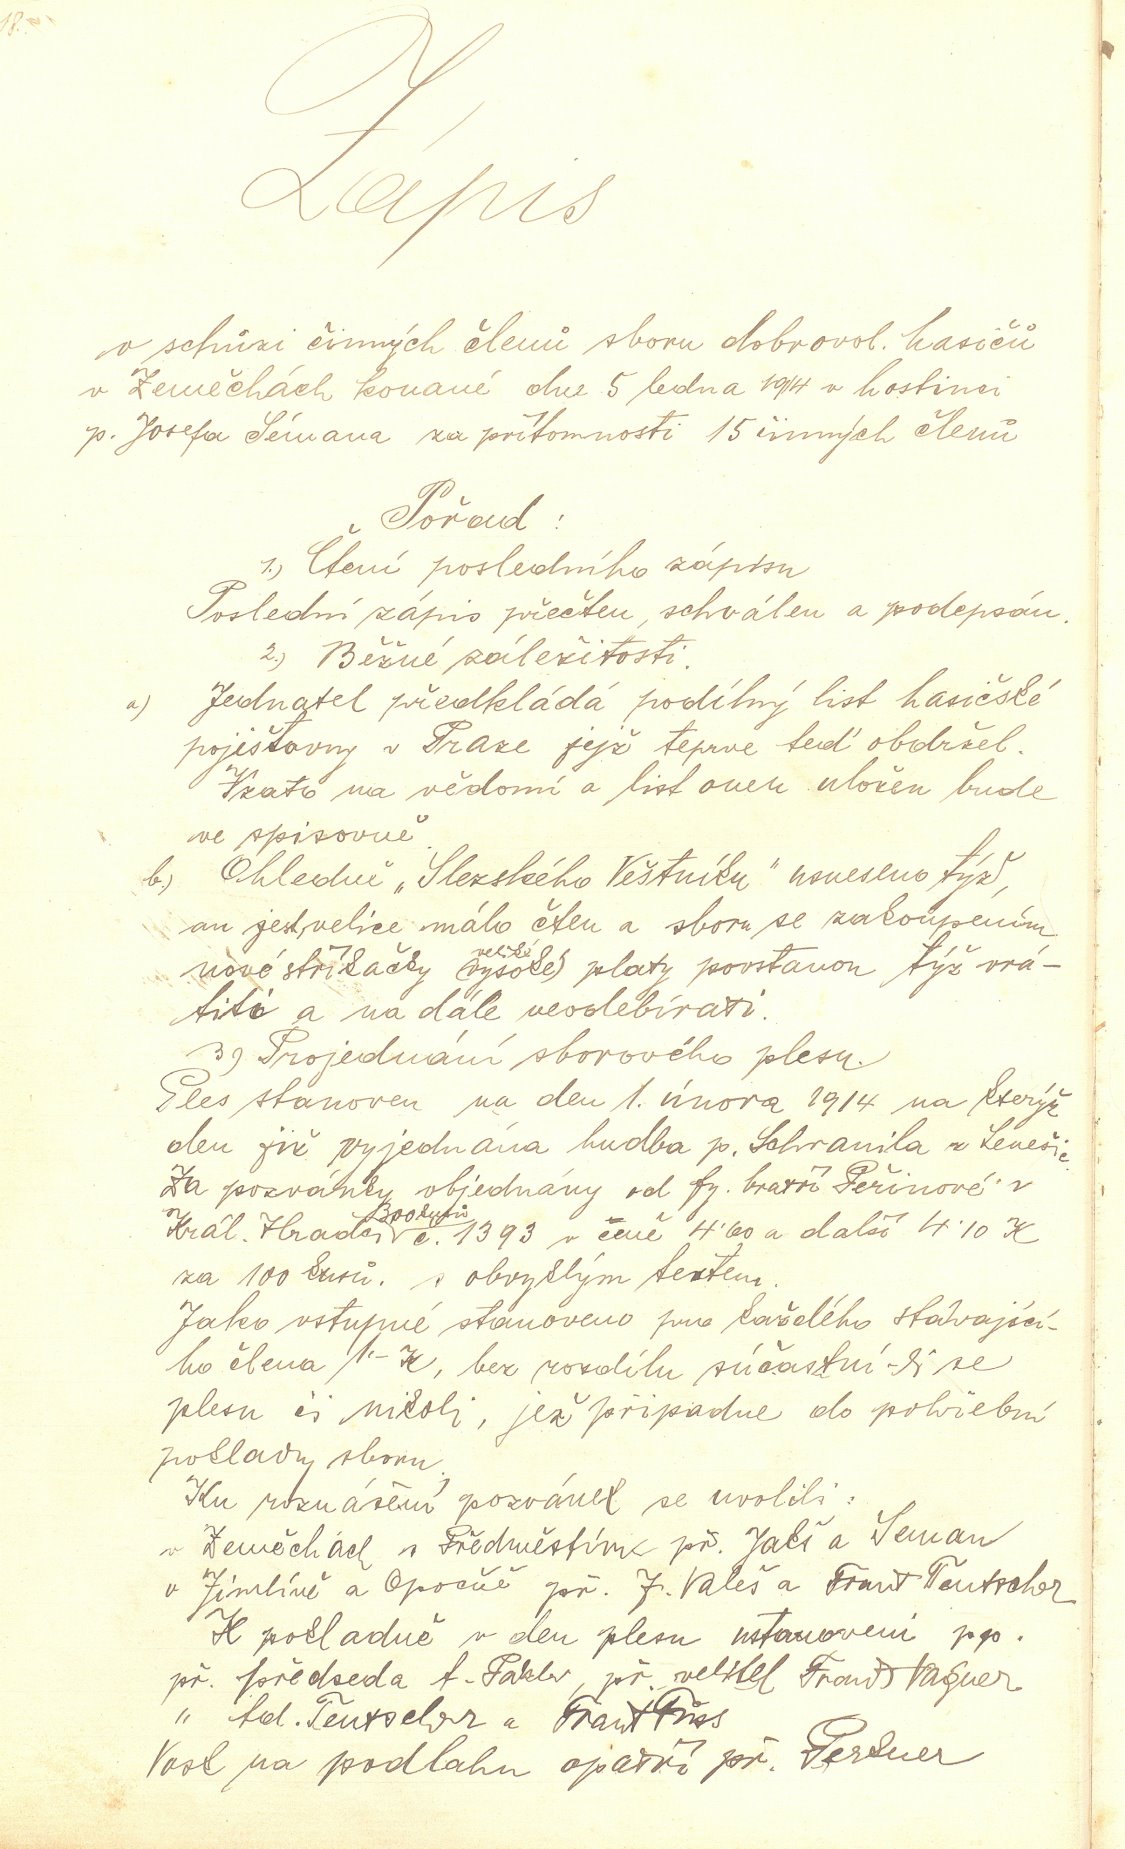 18.
Zápis
o schůzi činných členů sboru dobrovol. hasičů
v Zeměchách konané dne 5 ledna 1914 v hostinci
p. Josefa Sémana za přítomnosti 15 činných členů
Pořad :
1.) Čtení posledního zápisu
Poslední zápis přečten, schválen a podepsán.
2.) Běžné záležitosti.
a) Jednatel předkládá podílný list hasičské
pojišťovny v Praze jejž teprve teď obdržel.
Vzato na vědomí a list onen uložen bude
ve spisovně.
b.) Ohledně „Slezského Věštníku" usneseno týž,
an jest velice málo čten a sboru se zakoupením
nové stříkačky (vysoké) veliké platy povstanou týž vrá-
titi a na dále neodebírati.
3) Projednání sborového plesu.
Ples stanoven na den 1. února 1914 na kterýž
den již vyjednána hudba p. Schranila z Lenešic.
Za pozvánky objednány od fy. bratří Peřinové v
Král. Hradci 300 kusů č. 1393 v ceně 4·60 a další 4·10 K
za 100 kusů. s obvyklým textem.
Jako vstupné stanoveno pro každého stávající-
ho člena 1·- K, bez rozdílu súčastní-li se
plesu či nikoli, jež připadne do pohřební
pokladny sboru.
Ku roznášení pozvánek se uvolili :
v Zeměchách a Předměstím př. Jakš a Šeman
v Jimlíně a Opočně př. J. Valeš a Frant Teutscher
K pokladně v den plesu ustanoveni pp.
př. předseda A. Pakler, př. velitel Frant Vagner
" Ad. Teutscher a Frant Füss
Vosk na podlahu opatří př. Perkner